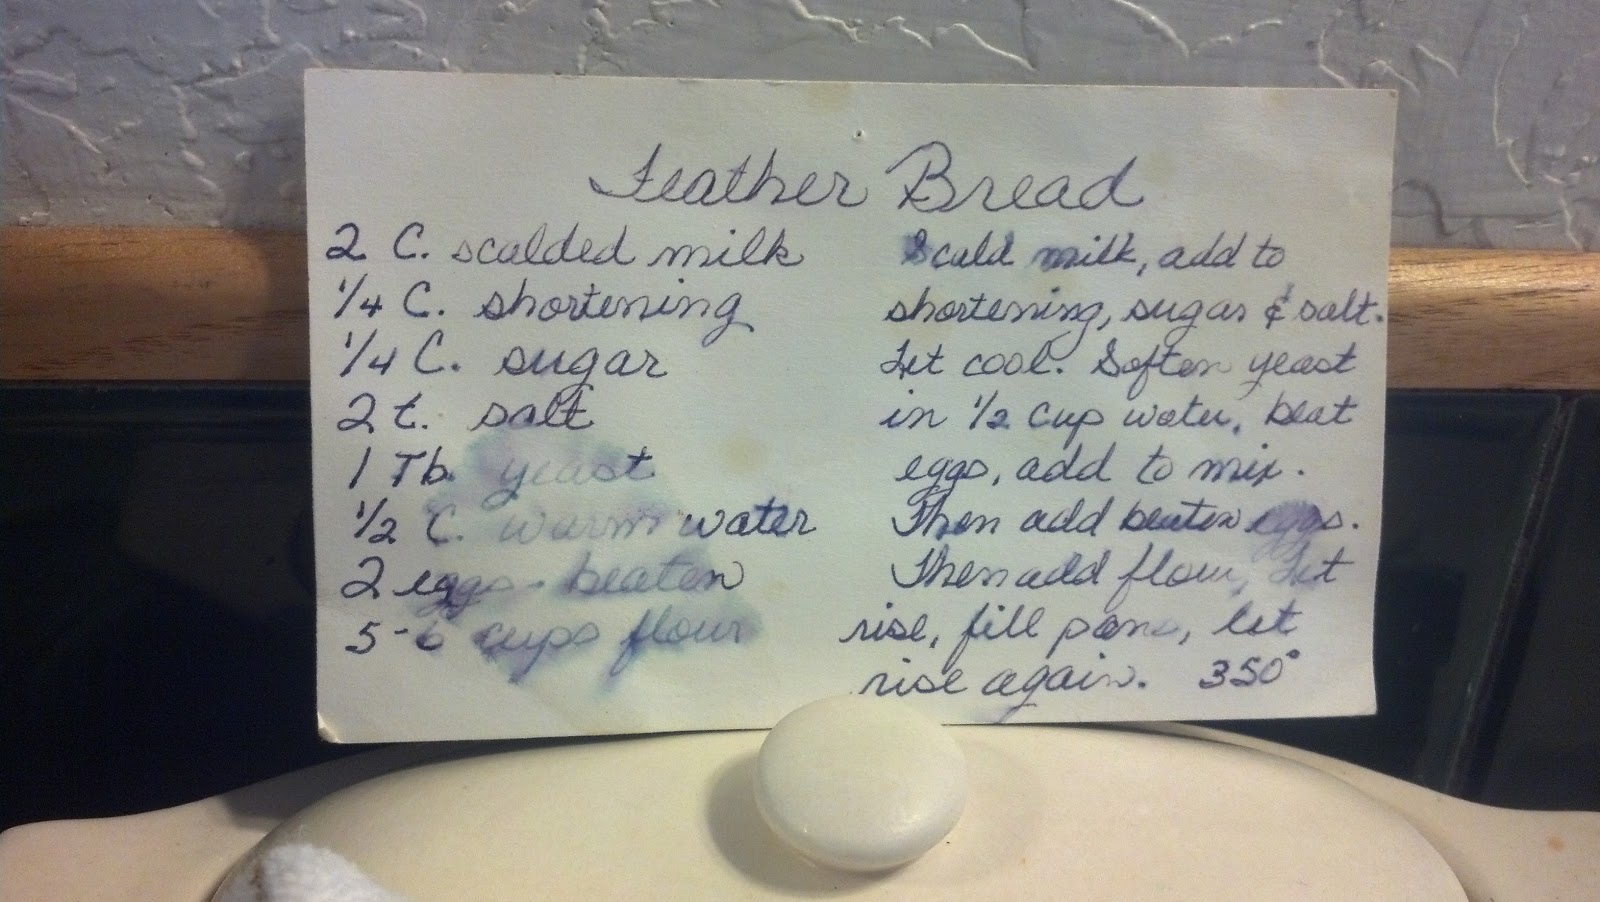 Feather Bread
2 C. scalded milk
1/4 C. shortening
1/4 C. sugar
2 t. salt
1 Tb. yeast
1/2 C. warm water
2 eggs - beaten
5-6 cups flour
Scald milk, add to
shortening, sugar & salt.
Let cool. Soften yeast
in 1/2 cup water, beat
eggs, add to mix.
Then add beaten eggs.
Then add flour, Let
rise, fill pans, let
rise again. 350°